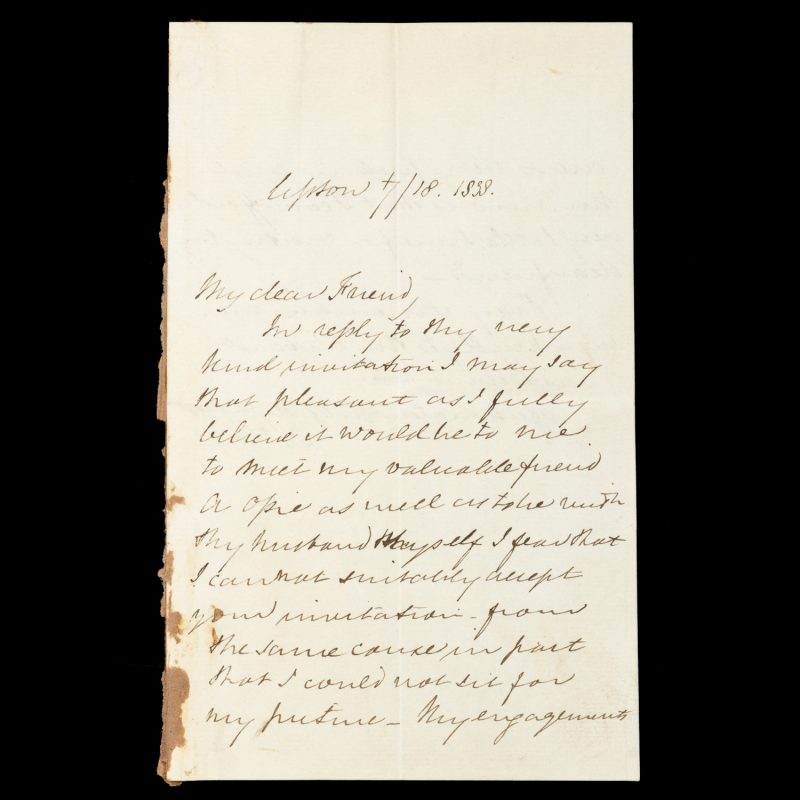 Upton 7/18. 1838.
My dear Friend,
In reply to thy very
kind invitation I may say
that pleasant as I fully
believe it would be to me
to meet my valuable friend
A Opie as well as to be with
thy husband thyself I fear that
I can not suitably accept
your invitation - from
the same cause in part
that I could not sit for
my picture - My engagements